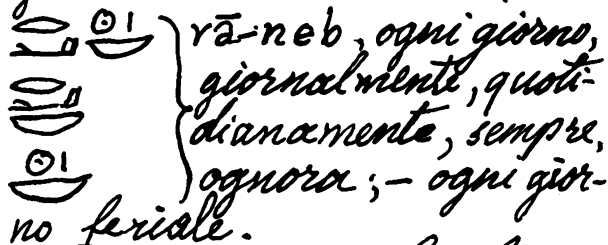 𓂋𓂝𓇳𓏤𓎟 rā-neb, ogni giorno,
𓂋𓂝𓎟 giornalmente, quoti-
dianamente, sempre,
𓇳𓏤𓎟 ognora; – ogni gior-
no feriale.